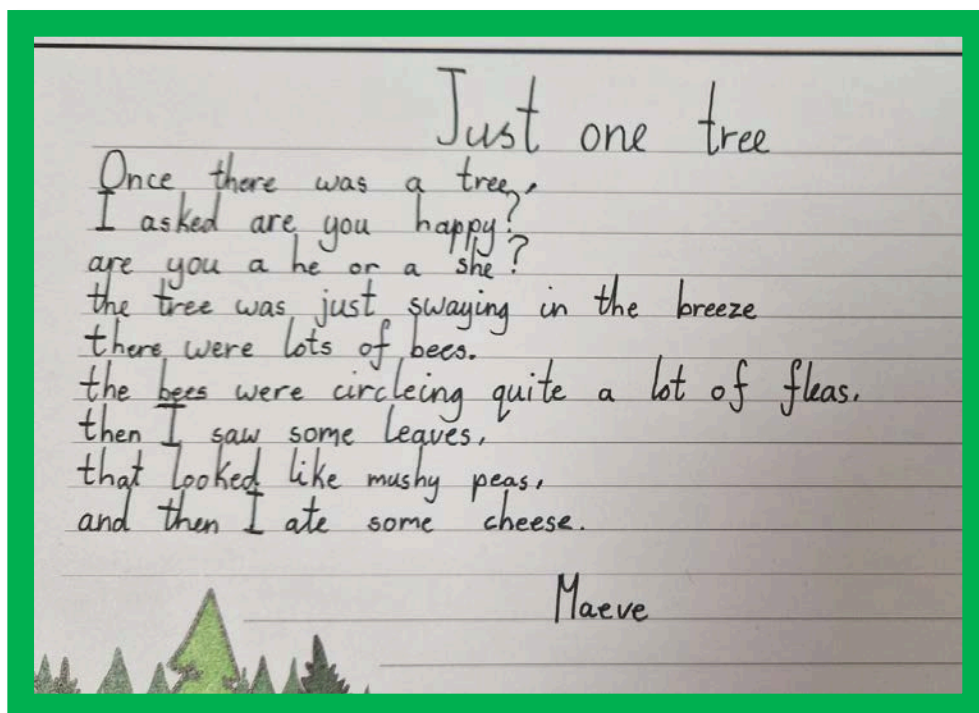 Just one tree
Once there was a tree,
I asked are you happy?
are you a he or a she?
the tree was just swaying in the breeze
there were lots of bees.
the bees were circleing quite a lot of fleas,
then I saw some leaves,
that looked like mushy peas,
and then I ate some cheese.
Maeve